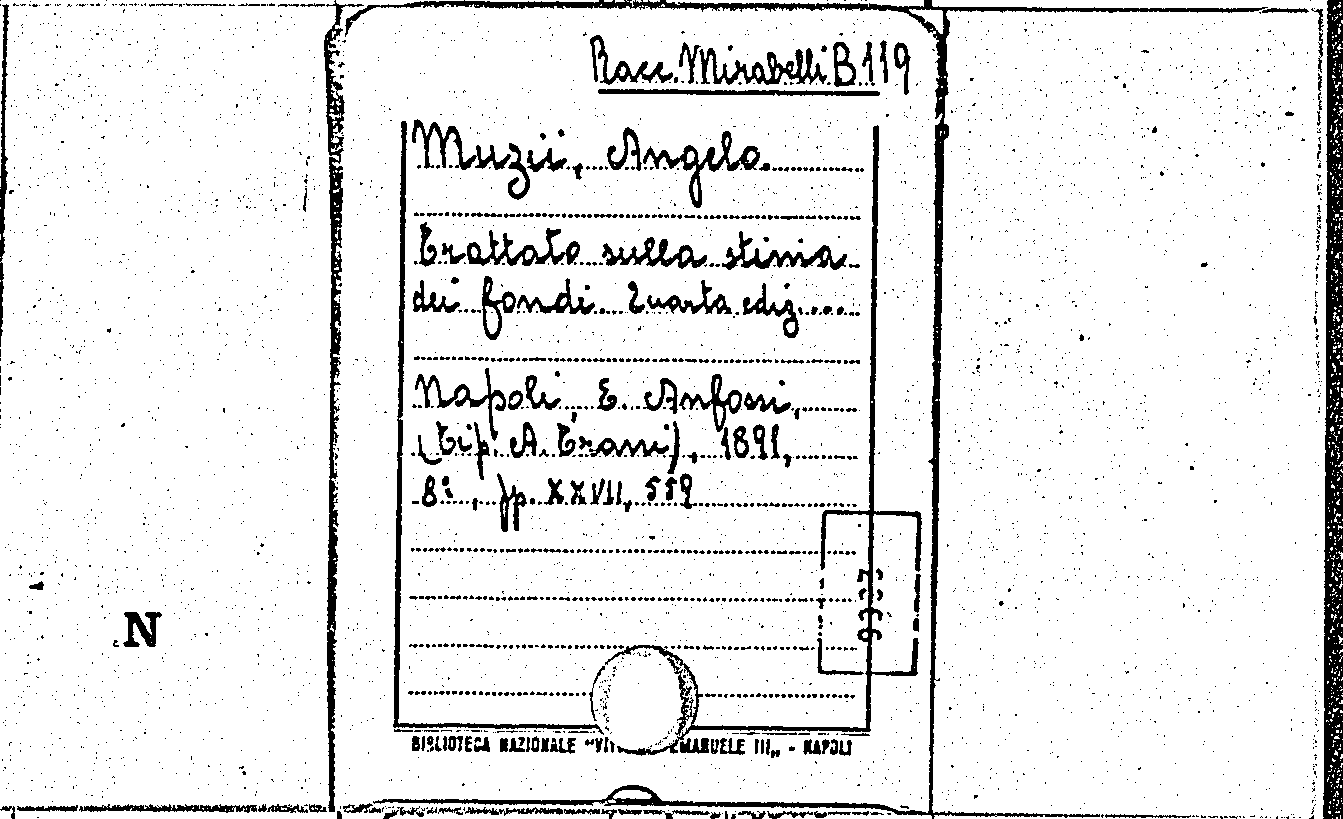 Racc. Mirabelli B 119
Muzii, Angelo.
Trattato sulla stima
dei fondi. Quarta ediz....
Napoli, E. Anfossi,
(Tip. A. Trani), 1891,
8º, pp. XXVII, 559
N
BIBLIOTECA NAZIONALE EMANUELE III„ - NAPOLI